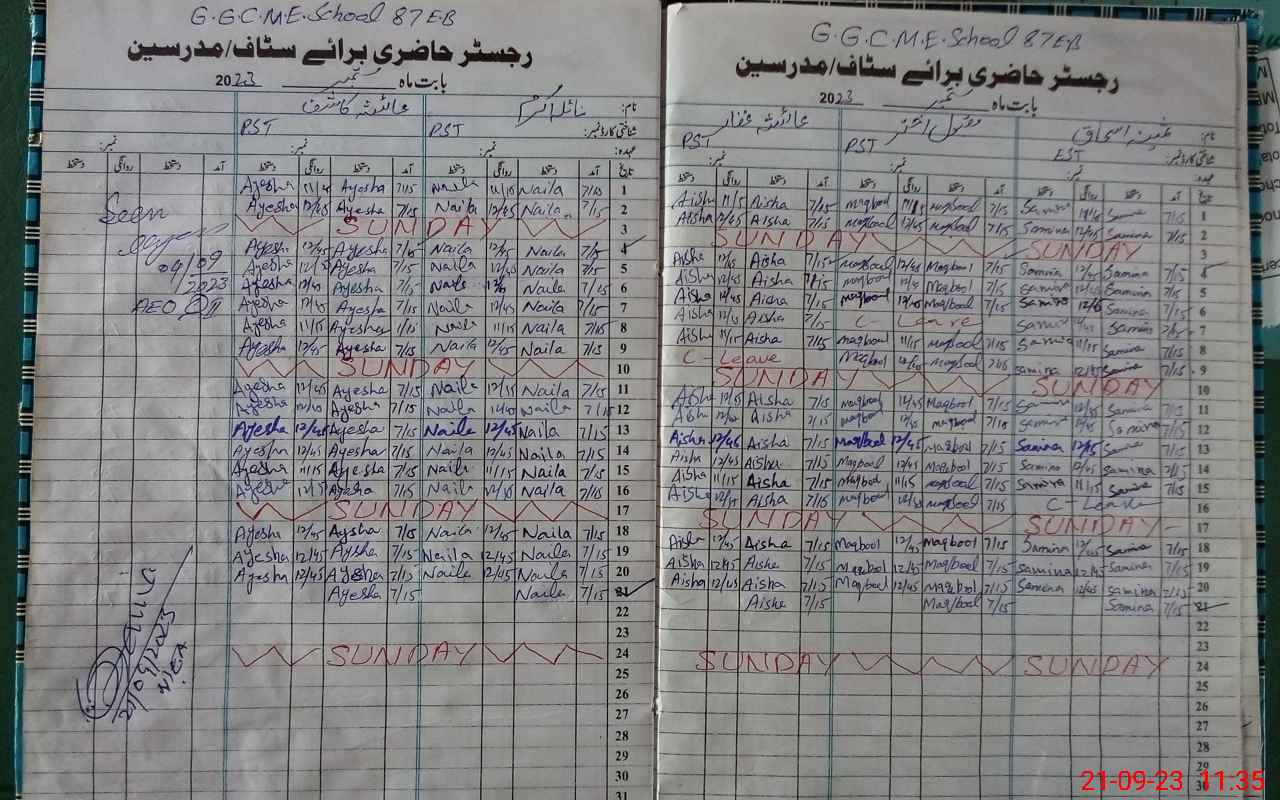 G.G.C.M.E.School 87 EB
رجسٹر حاضری برائے سٹاف/مدرسین
بابت ماہ ستمبر 2023
نام: نائلہ اکرم عائشہ کاشف
شناختی کارڈ نمبر: PST PST
عہدہ: نمبر: نمبر:
تاریخ آمد دستخط روانگی دستخط آمد دستخط روانگی دستخط آمد دستخط روانگی دستخط
Ayesha 11/15 Ayesha 7/15 Naila 11/15 Naila 7/15 1
Ayesha 12/45 Ayesha 7/15 Naila 12/45 Naila 7/15 2
SUNDAY 3
Ayesha 12/45 Ayesha 7/15 Naila 12/45 Naila 7/15 4
Ayesha 12/45 Ayesha 7/15 Naila 12/45 Naila 7/15 5
Ayesha 12/45 Ayesha 7/15 Naila Naila 7/15 6
Ayesha 12/45 Ayesha 7/15 Naila 12/45 Naila 7/15 7
Ayesha 11/15 Ayesha Naila 11/15 Naila 7/15 8
Ayesha 12/45 Ayesha 7/15 Naila 12/45 Naila 7/15 9
SUNDAY 10
Ayesha 12/45 Ayesha 7/15 Naila 12/45 Naila 7/15 11
Ayesha Ayesha 7/15 Naila Naila 7/15 12
Ayesha 12/45 Ayesha 7/15 Naila 12/45 Naila 7/15 13
Ayesha 12/45 Ayesha 7/15 Naila 12/45 Naila 7/15 14
Ayesha 11/15 Ayesha 7/15 Naila 11/15 Naila 7/15 15
Ayesha Ayesha 7/15 Naila Naila 7/15 16
SUNDAY 17
Ayesha 12/45 Ayesha 7/15 Naila 12/45 Naila 7/15 18
Ayesha 12/45 Ayesha 7/15 Naila 12/45 Naila 7/15 19
Ayesha 12/45 Ayesha 7/15 Naila 12/45 Naila 7/15 20
Ayesha 7/15 Naila 7/15 21
22
23
SUNDAY 24
25
26
27
28
29
30
31
Seen
04/09
2023
AEO
21/09/2023
G.G.C.M.E.School 87 EB
رجسٹر حاضری برائے سٹاف/مدرسین
بابت ماہ ستمبر 2023
نام: ثمینہ اسحاق مقبول اختر عائشہ غفار
شناختی کارڈ نمبر: EST PST PST
عہدہ: نمبر: نمبر: نمبر:
تاریخ آمد دستخط روانگی دستخط آمد دستخط روانگی دستخط آمد دستخط روانگی دستخط
Aisha 11/15 Aisha 7/15 maqbool 11/15 maqbool 7/15 Samina Samina 7/15 1
Aisha 12/45 Aisha 7/15 maqbool 12/45 maqbool 7/15 Samina 12/45 Samina 7/15 2
SUNDAY SUNDAY 3
Aisha 12/45 Aisha 7/15 maqbool 12/45 Maqbool 7/15 Samina 12/45 Samina 7/15 4
Aisha 12/45 Aisha 7/15 maqbool 12/45 Maqbool 7/15 Samina 12/45 Samina 7/15 5
Aisha 12/45 Aisha 7/15 maqbool 12/45 Maqbool 7/15 Samina 12/45 Samina 7/15 6
Aisha 12/45 Aisha 7/15 C - Leave Samina 12/45 Samina 7/15 7
Aisha 11/15 Aisha 7/15 maqbool 11/15 maqbool 7/15 Samina 11/15 Samina 7/15 8
C - Leave Maqbool maqbool 7/15 samina 12/45 Samina 7/15 9
SUNDAY SUNDAY 10
Aisha 12/45 Aisha 7/15 maqbool 12/45 Maqbool 7/15 Samina 12/45 Samina 7/15 11
Aisha Aisha 7/15 maqbool 12/45 maqbool 7/15 Samina 12/45 Samina 7/15 12
Aisha 12/45 Aisha 7/15 Maqbool 12/45 Maqbool 7/15 Samina Samina 7/15 13
Aisha 12/45 Aisha 7/15 Maqbool 12/45 Maqbool 7/15 Samina 12/45 Samina 7/15 14
Aisha 11/15 Aisha 7/15 Maqbool 11/15 maqbool 7/15 Samina 11/15 Samina 7/15 15
Aisha Aisha 7/15 maqbool maqbool 7/15 C - Leave 16
SUNDAY SUNDAY 17
Aisha 12/45 Aisha 7/15 Maqbool 12/45 Maqbool 7/15 Samina 12/45 Samina 7/15 18
Aisha 12/45 Aisha 7/15 Maqbool 12/45 Maqbool 7/15 Samina 12/45 Samina 7/15 19
Aisha 12/45 Aisha 7/15 Maqbool 12/45 Maqbool 7/15 Samina 12/45 Samina 7/15 20
Aisha 7/15 Maqbool 7/15 Samina 7/15 21
22
23
SUNDAY SUNDAY 24
25
26
27
28
29
30
21-09-23 11:35